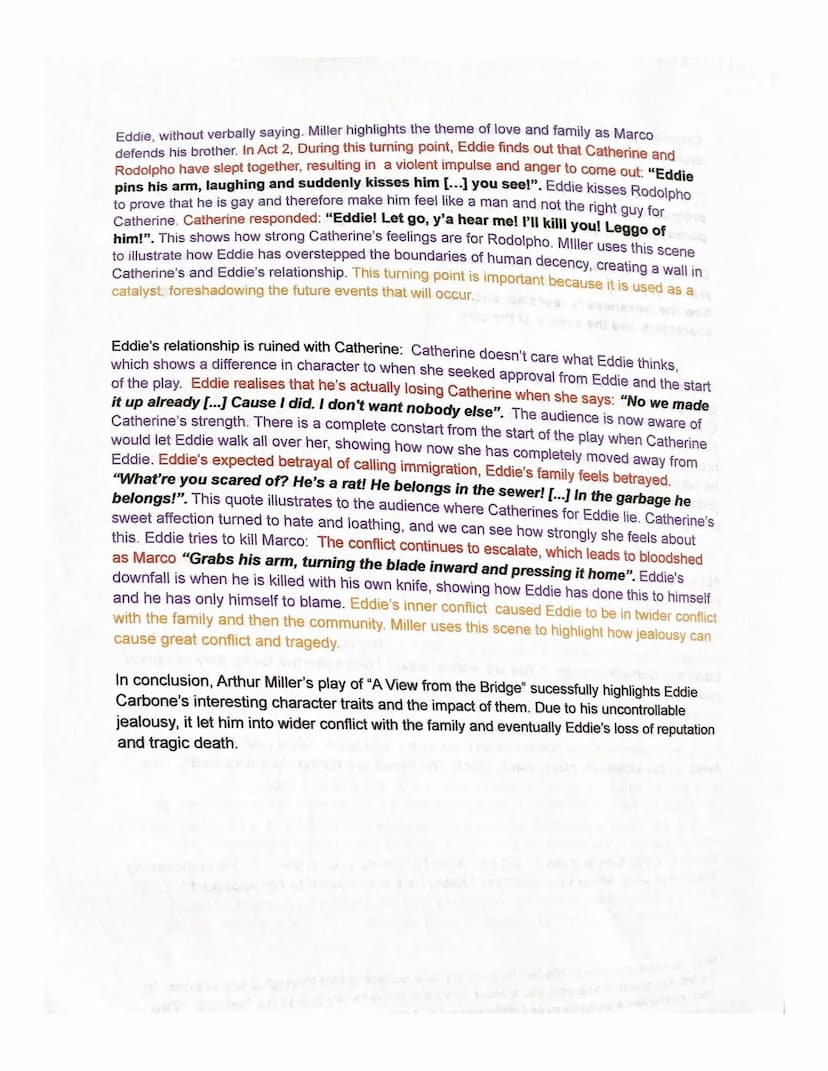 Eddie, without verbally saying. Miller highlights the theme of love and family as Marco
defends his brother. In Act 2, During this turning point, Eddie finds out that Catherine and
Rodolpho have slept together, resulting in a violent impulse and anger to come out: “Eddie
pins his arm, laughing and suddenly kisses him [...] you see!”. Eddie kisses Rodolpho
to prove that he is gay and therefore make him feel like a man and not the right guy for
Catherine. Catherine responded: “Eddie! Let go, y’a hear me! I’ll killl you! Leggo of
him!”. This shows how strong Catherine’s feelings are for Rodolpho. MIller uses this scene
to illustrate how Eddie has overstepped the boundaries of human decency, creating a wall in
Catherine’s and Eddie’s relationship. This turning point is important because it is used as a
catalyst, foreshadowing the future events that will occur.
Eddie’s relationship is ruined with Catherine: Catherine doesn't care what Eddie thinks,
which shows a difference in character to when she seeked approval from Eddie and the start
of the play. Eddie realises that he’s actually losing Catherine when she says: “No we made
it up already [...] Cause I did. I don't want nobody else”. The audience is now aware of
Catherine’s strength. There is a complete constart from the start of the play when Catherine
would let Eddie walk all over her, showing how now she has completely moved away from
Eddie. Eddie’s expected betrayal of calling immigration, Eddie’s family feels betrayed.
“What’re you scared of? He’s a rat! He belongs in the sewer! [...] In the garbage he
belongs!”. This quote illustrates to the audience where Catherines for Eddie lie. Catherine’s
sweet affection turned to hate and loathing, and we can see how strongly she feels about
this. Eddie tries to kill Marco: The conflict continues to escalate, which leads to bloodshed
as Marco “Grabs his arm, turning the blade inward and pressing it home”. Eddie's
downfall is when he is killed with his own knife, showing how Eddie has done this to himself
and he has only himself to blame. Eddie’s inner conflict caused Eddie to be in twider conflict
with the family and then the community. Miller uses this scene to highlight how jealousy can
cause great conflict and tragedy.
In conclusion, Arthur Miller’s play of “A View from the Bridge” sucessfully highlights Eddie
Carbone’s interesting character traits and the impact of them. Due to his uncontrollable
jealousy, it let him into wider conflict with the family and eventually Eddie’s loss of reputation
and tragic death.